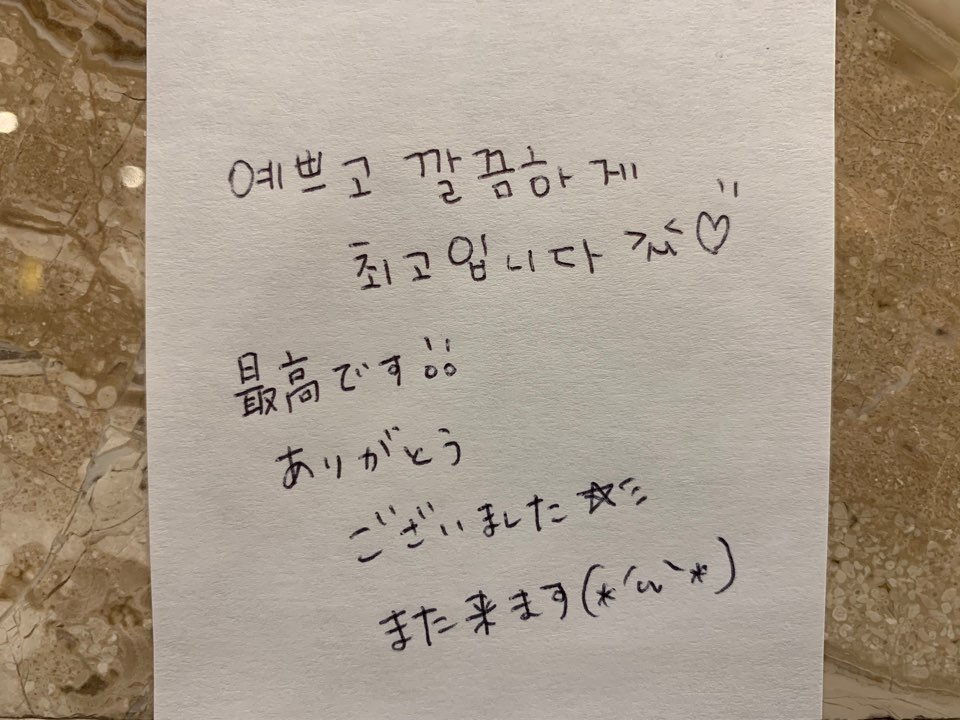 예쁘고 깔끔하게
최고입니다 >ㅅ<♡"
最高です!!
ありがとう
ございました☆ミ
また来ます(*´ω`*)